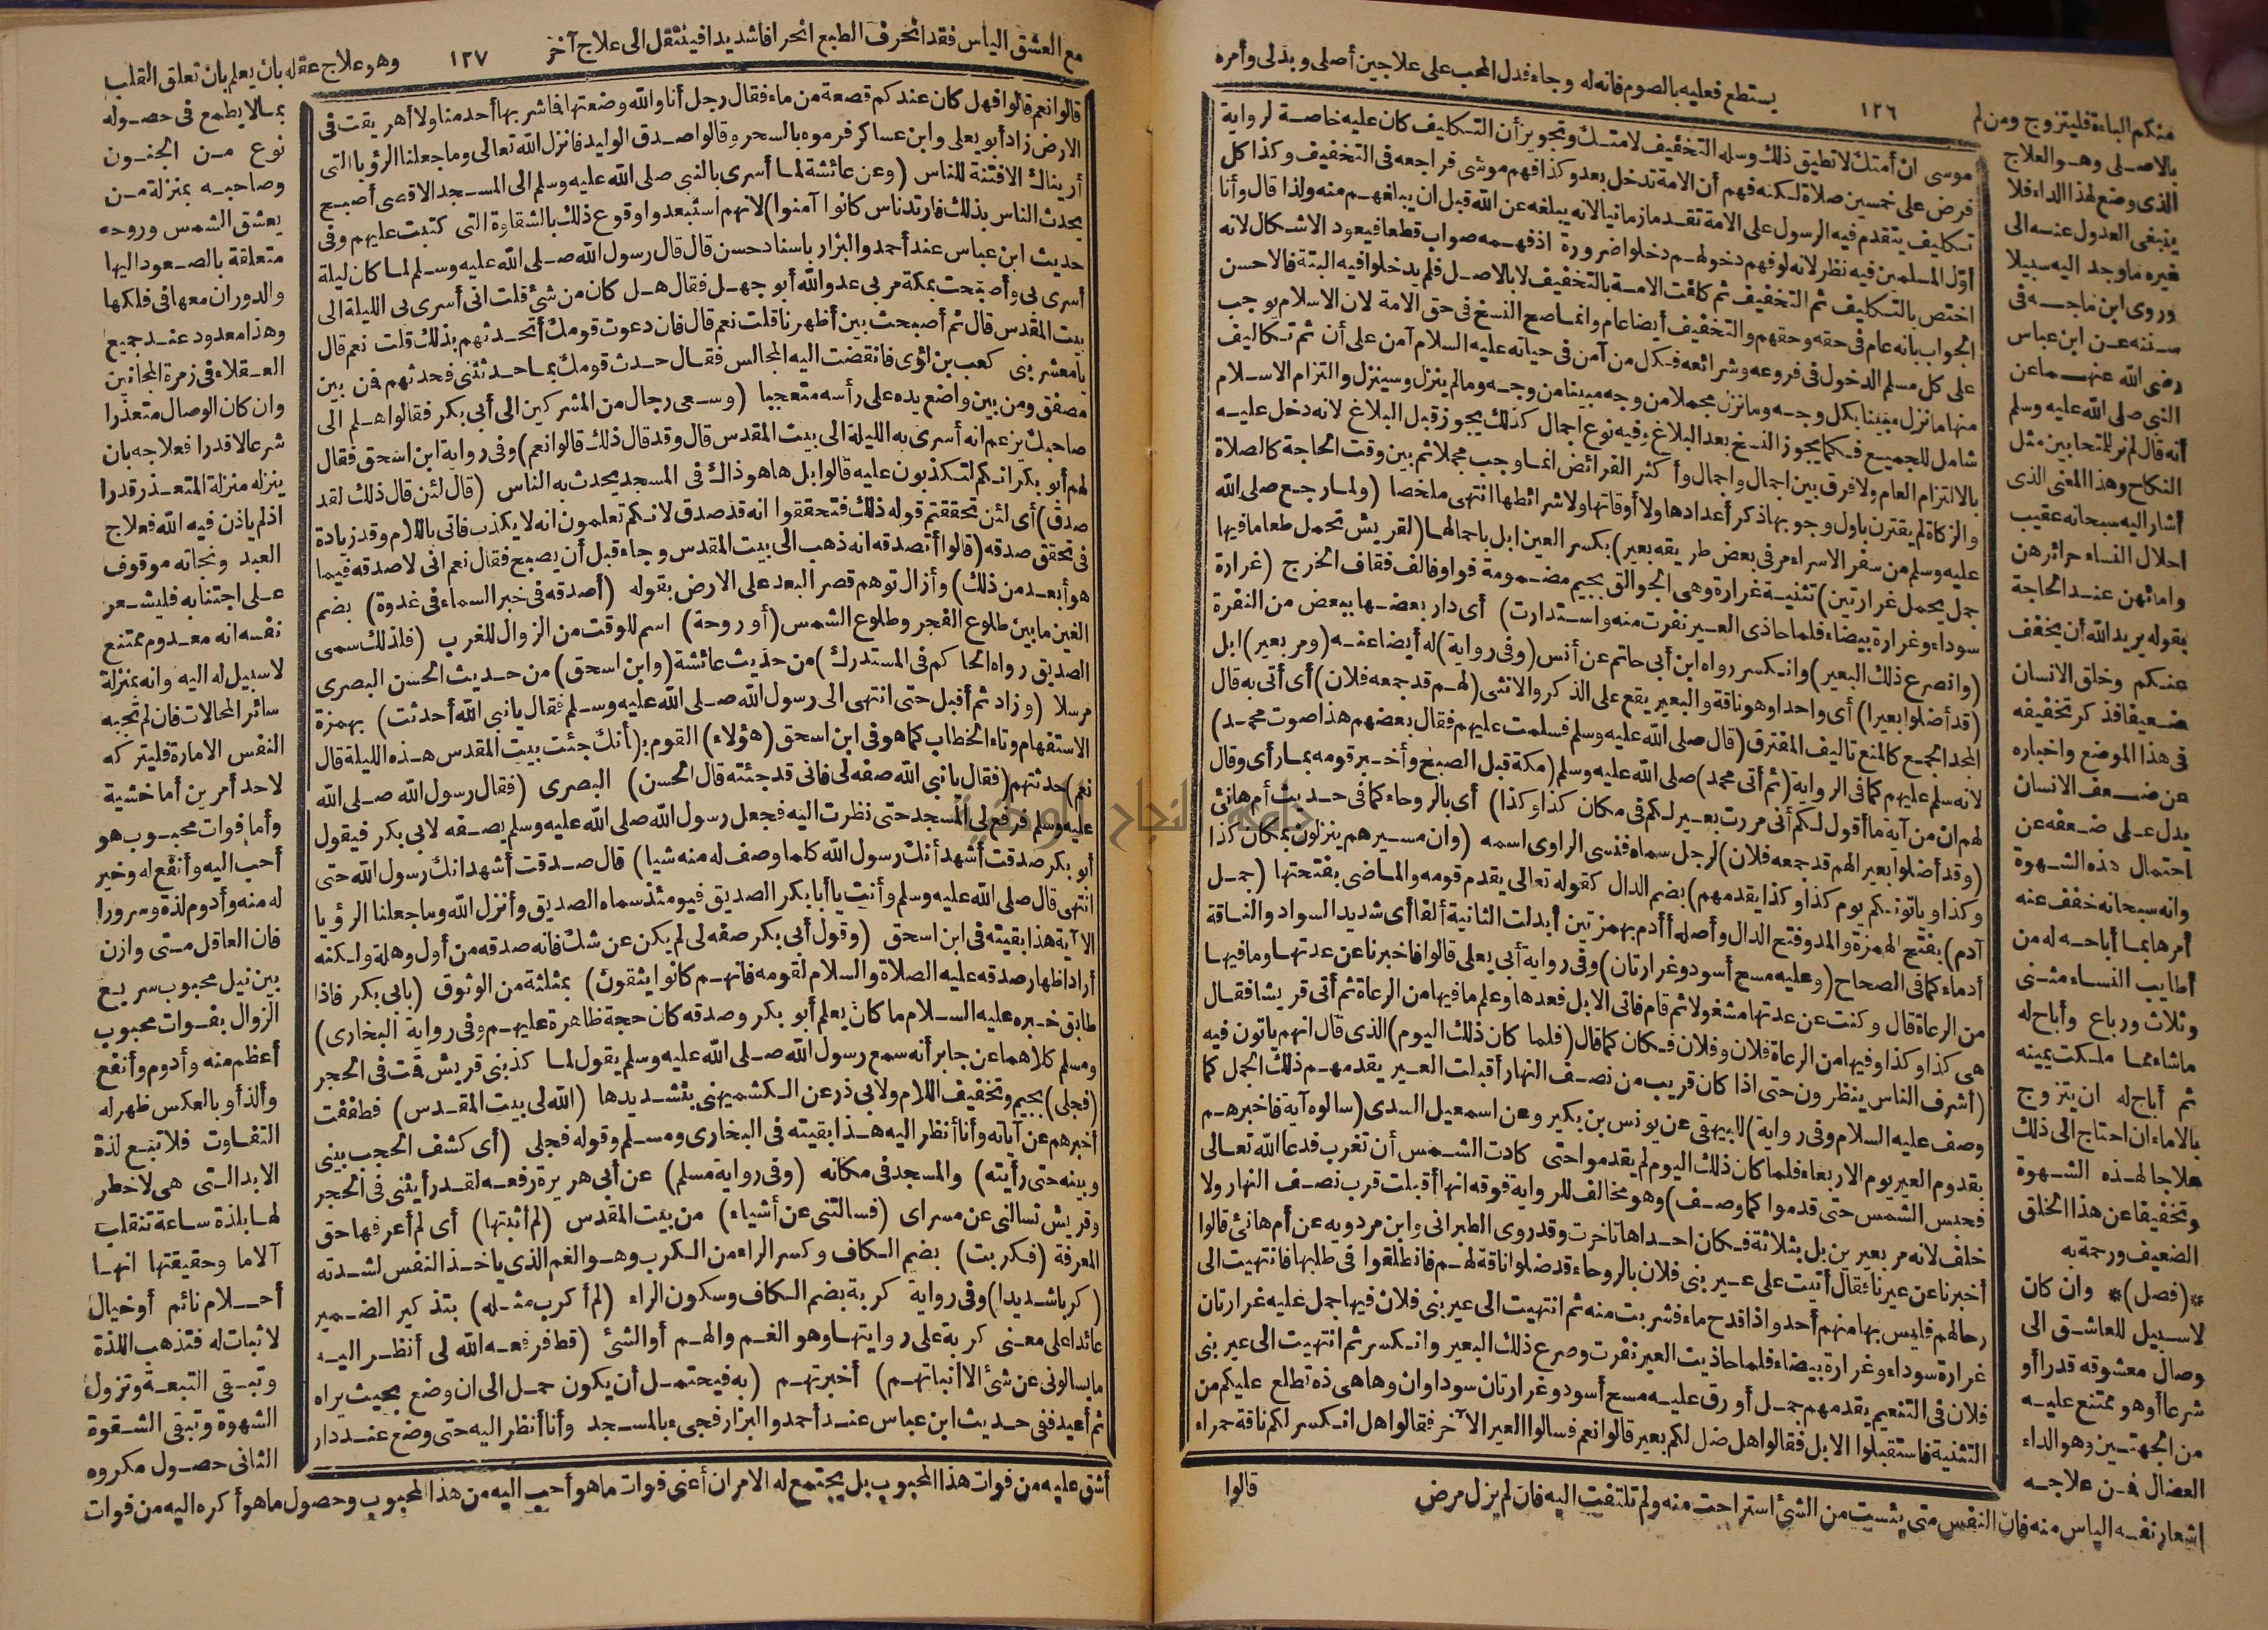 منكم الباءة فليتزوج ومن لم
١٢٦
يستطع فعليه بالصوم فانه له وجاء فدل المحب على علاجين أصلى وبدلى وأمره
بالاصلى وهو العلاج
الذى وضع لهذا الداء فلا
ينبغى العدول عنه الى
غيره ما وجد اليه سبيلا
وروى ابن ماجه فى
سننه عن ابن عباس
رضى الله عنهما عن
النبى صلى الله عليه وسلم
أنه قال لم نر للمتحابين مثل
النكاح وهذا المعنى الذى
أشار اليه سبحانه عقيب
احلال النساء حرائرهن
وامائهن عند الحاجة
بقوله يريد الله أن يخفف
عنكم وخلق الانسان
ضعيفا فذكر تخفيفه
فى هذا الموضع واخباره
عن ضعف الانسان
يدل على ضعفه عن
احتمال هذه الشهوة
وانه سبحانه خفف عنه
أمرها بما أباحه له من
أطايب النساء مثنى
وثلاث ورباع وأباح له
ما شاء مما ملكت يمينه
ثم أباح له ان يتزوج
بالاماء ان احتاج الى ذلك
علاجا لهذه الشهوة
وتخفيفا عن هذا الخلق
الضعيف ورحمة به
*(فصل)* وان كان
لا سبيل للعاشق الى
وصال معشوقه قدرا أو
شرعا أو هو ممتنع عليه
من الجهتين وهو الداء
العضال فمن علاجه
اشعار نفسه الياس منه فان النفس متى يئست من الشئ استراحت منه ولم تلتفت اليه فان لم يزل مرض
موسى ان أمتك لا تطيق ذلك وسله التخفيف لامتك وتجويز أن التكليف كان عليه خاصة لرواية
فرض على خمسين صلاة لكنه فهم أن الامة تدخل بعد وكذا فهم موسى فراجعه فى التخفيف وكذا كل
تكليف يتقدم فيه الرسول على الامة تقدما زمانيا لانه يبلغه عن الله قبل ان يبلغهم منه ولذا قال وأنا
أول المسلمين فيه نظر لانه لو فهم دخولهم دخلوا ضرورة اذ فهمه صواب قطعا فيعود الاشكال لانه
اختص بالتكليف ثم التخفيف ثم كلفت الامة بالتخفيف لا بالاصل فلم يدخلوا فيه البتة فالاحسن
الجواب بانه عام فى حقه وحقهم والتخفيف أيضا عام وانما صح النسخ فى حق الامة لان الاسلام يوجب
على كل مسلم الدخول فى فروعه وشرائعه فكل من آمن فى حياته عليه السلام آمن على أن ثم تكاليف
منها ما نزل مبينا بكل وجه وما نزل مجملا من وجه مبينا من وجه وما لم ينزل وسينزل والتزام الاسلام
شامل للجميع فكما يجوز النسخ بعد البلاغ وفيه نوع اجمال كذلك يجوز قبل البلاغ لانه دخل عليه
بالالتزام العام ولا فرق بين اجمال واجمال وأكثر الفرائض انما وجب مجملا ثم بين وقت الحاجة كالصلاة
والزكاة لم يقترن باول وجوبها ذكر أعدادها ولا أوقاتها ولا شرائطها انتهى ملخصا (ولما رجع صلى الله
عليه وسلم من سفر الاسراء مر فى بعض طريقه بعير) بكسر العين ابل باحمالها (لقريش تحمل طعاما فيها
جمل يحمل غرارتين) تثنية غرارة وهى الجوالق بجيم مضمومة فواو فالف فقاف الخرج (غرارة
سوداء وغرارة بيضاء فلما حاذى العير نفرت منه واستدارت) أى دار بعضها ببعض من النفرة
(وانصرع ذلك البعير) وانكسر رواه ابن أبى حاتم عن أنس (وفى رواية) له أيضا عنه (ومر بعير) ابل
(قد أضلوا بعيرا) أى واحدا وهو ناقة والبعير يقع على الذكر والانثى (لهم قد جمعه فلان) أى أتى به قال
المجد الجمع كالمنع تاليف المفترق (قال صلى الله عليه وسلم فسلمت عليهم فقال بعضهم هذا صوت محمد)
لانه سلم عليهم كما فى الرواية (ثم أتى محمد) صلى الله عليه وسلم (مكة قبل الصبح وأخبر قومه بما رأى وقال
لهم ان من آية ما أقول لكم أنى مررت بعير لكم فى مكان كذا وكذا) أى بالروحاء كما فى حديث أم هانئ
(وقد أضلوا بعيرا لهم قد جمعه فلان) لرجل سماه فنسى الراوى اسمه (وان مسيرهم ينزلون بمكان كذا
وكذا وياتونكم يوم كذا وكذا يقدمهم) بضم الدال كقوله تعالى يقدم قومه والماضى بفتحتها (جمل
آدم) بفتح الهمزة والمد وفتح الدال وأصله أأدم بهمزتين أبدلت الثانية ألفا أى شديد السواد والناقة
أدماء كما فى الصحاح (وعليه مسح أسود وغرارتان) وفى رواية أبى يعلى قالوا فاخبرنا عن عدتها وما فيها
من الرعاة قال وكنت عن عدتها مشغولا ثم قام فاتى الابل فعدها وعلم ما فيها من الرعاة ثم أتى قريشا فقال
هى كذا وكذا وفيها من الرعاة فلان وفلان فكان كما قال (فلما كان ذلك اليوم) الذى قال انهم ياتون فيه
(أشرف الناس ينظرون حتى اذا كان قريب من نصف النهار أقبلت العير يقدمهم ذلك الجمل كما
وصف عليه السلام وفى رواية) للبيهقى عن يونس بن بكير وعن اسمعيل السدى (سالوه آية فاخبرهم
بقدوم العير يوم الاربعاء فلما كان ذلك اليوم لم يقدموا حتى كادت الشمس أن تغرب فدعا الله تعالى
فحبس الشمس حتى قدموا كما وصف) وهو مخالف للرواية فوقه انها أقبلت قرب نصف النهار ولا
خلف لانه مر بعيرين بل بثلاثة فكان احداها تاخرت وقد روى الطبرانى وابن مردويه عن أم هانئ قالوا
أخبرنا عن عيرنا فقال أتيت على عير بنى فلان بالروحاء قد ضلوا ناقة لهم فانطلقوا فى طلبها فانتهيت الى
رحالهم فليس بها منهم أحد واذا قدح ماء فشربت منه ثم انتهيت الى عير بنى فلان فيها جمل عليه غرارتان
غرارة سوداء وغرارة بيضاء فلما حاذيت العير نفرت وصرع ذلك البعير وانكسر ثم انتهيت الى عير بنى
فلان فى التنعيم يقدمهم جمل أورق عليه مسح أسود وغرارتان سوداوان وها هى ذه تطلع عليكم من
الثنية فاستقبلوا الابل فقالوا هل ضل لكم بعير قالوا نعم فسالوا العير الآخر فقالوا هل انكسر لكم ناقة حمراء
قالوا
مع العشق الياس فقد انحرف الطبع انحرافا شديدا فينتقل الى علاج آخر
١٢٧
وهو علاج عقله بان يعلم بان تعلق القلب
بما لا يطمع فى حصوله
نوع من الجنون
وصاحبه بمنزلة من
يعشق الشمس وروحه
متعلقة بالصعود اليها
والدوران معها فى فلكها
وهذا معدود عند جميع
العقلاء فى زمرة المجانين
وان كان الوصال متعذرا
شرعا لا قدرا فعلاجه بان
ينزله منزلة المتعذر قدرا
اذ لم ياذن فيه الله فعلاج
العبد ونجاته موقوف
على اجتنابه فليشعر
نفسه انه معدوم ممتنع
لا سبيل له اليه وانه بمنزلة
سائر المحالات فان لم تجبه
النفس الامارة فليتركه
لاحد أمرين أما خشية
وأما فوات محبوب هو
أحب اليه وأنفع له وخير
له منه وأدوم لذة وسرورا
فان العاقل متى وازن
بين نيل محبوب سريع
الزوال بفوات محبوب
أعظم منه وأدوم وأنفع
وألذ أو بالعكس ظهر له
التفاوت فلا تبع لذة
الابد التى هى لا خطر
لها بلذة ساعة تنقلب
آلاما وحقيقتها انها
أحلام نائم أو خيال
لا ثبات له فتذهب اللذة
وتبقى التبعة وتزول
الشهوة وتبقى الشقوة
الثانى حصول مكروه
أشق عليه من فوات هذا المحبوب بل يجتمع له الامران أعنى فوات ما هو أحب اليه من هذا المحبوب وحصول ما هو أكره اليه من فوات
قالوا نعم قالوا فهل كان عندكم قصعة من ماء فقال رجل أنا والله وضعتها فما شربها أحد منا ولا أهريقت فى
الارض زاد أبو يعلى وابن عساكر فرموه بالسحر وقالوا صدق الوليد فانزل الله تعالى وما جعلنا الرؤيا التى
أريناك الا فتنة للناس (وعن عائشة لما أسرى بالنبى صلى الله عليه وسلم الى المسجد الاقصى أصبح
يحدث الناس بذلك فارتد ناس كانوا آمنوا) لانهم استبعدوا وقوع ذلك بالشقاوة التى كتبت عليهم وفى
حديث ابن عباس عند أحمد والبزار باسناد حسن قال قال رسول الله صلى الله عليه وسلم لما كان ليلة
أسرى بى وأصبحت بمكة مر بى عدو الله أبو جهل فقال هل كان من شئ قلت انى أسرى بى الليلة الى
بيت المقدس قال ثم أصبحت بين أظهرنا قلت نعم قال فان دعوت قومك أتحدثهم بذلك قلت نعم قال
يا معشر بنى كعب بن لؤى فانفضت اليه المجالس فقال حدث قومك بما حدثتنى فحدثهم فمن بين
مصفق ومن بين واضع يده على رأسه متعجبا (وسعى رجال من المشركين الى أبى بكر فقالوا هلم الى
صاحبك يزعم انه أسرى به الليلة الى بيت المقدس قال وقد قال ذلك قالوا نعم) وفى رواية ابن اسحق فقال
لهم أبو بكر انكم لتكذبون عليه قالوا بل ها هو ذاك فى المسجد يحدث به الناس (قال لئن قال ذلك لقد
صدق) أى لئن تحققتم قوله ذلك فتحققوا انه قد صدق لانكم تعلمون انه لا يكذب فاتى باللام وقد زيادة
فى تحقق صدقه (قالوا أتصدقه انه ذهب الى بيت المقدس وجاء قبل أن يصبح فقال نعم انى لاصدقه فيما
هو أبعد من ذلك) وأزال توهم قصر البعد على الارض بقوله (أصدقه فى خبر السماء فى غدوة) بضم
الغين ما بين طلوع الفجر وطلوع الشمس (أو روحة) اسم للوقت من الزوال للغرب (فلذلك سمى
الصديق رواه الحاكم فى المستدرك) من حديث عائشة (وابن اسحق) من حديث الحسن البصرى
مرسلا (وزاد ثم أقبل حتى انتهى الى رسول الله صلى الله عليه وسلم فقال يا نبى الله أحدثت) بهمزة
الاستفهام وتاء الخطاب كما هو فى ابن اسحق (هؤلاء) القوم (أنك جئت بيت المقدس هذه الليلة قال
نعم) حدثتهم (فقال يا نبى الله صفه لى فانى قد جئته قال الحسن) البصرى (فقال رسول الله صلى الله
عليه وسلم فرفع لى المسجد حتى نظرت اليه فجعل رسول الله صلى الله عليه وسلم يصفه لابى بكر فيقول
أبو بكر صدقت أشهد أنك رسول الله كلما وصف له منه شيا) قال صدقت أشهد انك رسول الله حتى
انتهى قال صلى الله عليه وسلم وأنت يا أبا بكر الصديق فيومئذ سماه الصديق وأنزل الله وما جعلنا الرؤيا
الآية هذا بقيته فى ابن اسحق (وقول أبى بكر صفه لى لم يكن عن شك فانه صدقه من أول وهلة ولكنه
أراد اظهار صدقه عليه الصلاة والسلام لقومه فانهم كانوا يثقون) بمثلثة من الوثوق (بابى بكر فاذا
طابق خبره عليه السلام ما كان يعلم أبو بكر وصدقه كان حجة ظاهرة عليهم وفى رواية البخارى)
ومسلم كلاهما عن جابر أنه سمع رسول الله صلى الله عليه وسلم يقول لما كذبنى قريش قمت فى الحجر
(فجلى) بجيم وتخفيف اللام ولابى ذر عن الكشميهنى بتشديدها (الله لى بيت المقدس) فطفقت
أخبرهم عن آياته وأنا أنظر اليه هذا بقيته فى البخارى ومسلم وقوله فجلى (أى كشف الحجب بينى
وبينه حتى رأيته) والمسجد فى مكانه (وفى رواية مسلم) عن أبى هريرة رفعه لقد رأيتنى فى الحجر
وقريش تسالنى عن مسراى (فسالتنى عن أشياء) من بيت المقدس (لم أثبتها) أى لم أعرفها حق
المعرفة (فكربت) بضم الكاف وكسر الراء من الكرب وهو الغم الذى ياخذ النفس لشدته
(كربا شديدا) وفى رواية كربة بضم الكاف وسكون الراء (لم أكرب مثله) بتذكير الضمير
عائدا على معنى كربة على روايتها وهو الغم والهم أو الشئ (قط فرفعه الله لى أنظر اليه
ما يسالونى عن شئ الا أنباتهم) أخبرتهم (به فيحتمل أن يكون حمل الى ان وضع بحيث يراه
ثم أعيد ففى حديث ابن عباس عند أحمد والبزار فجىء بالمسجد وأنا أنظر اليه حتى وضع عند دار